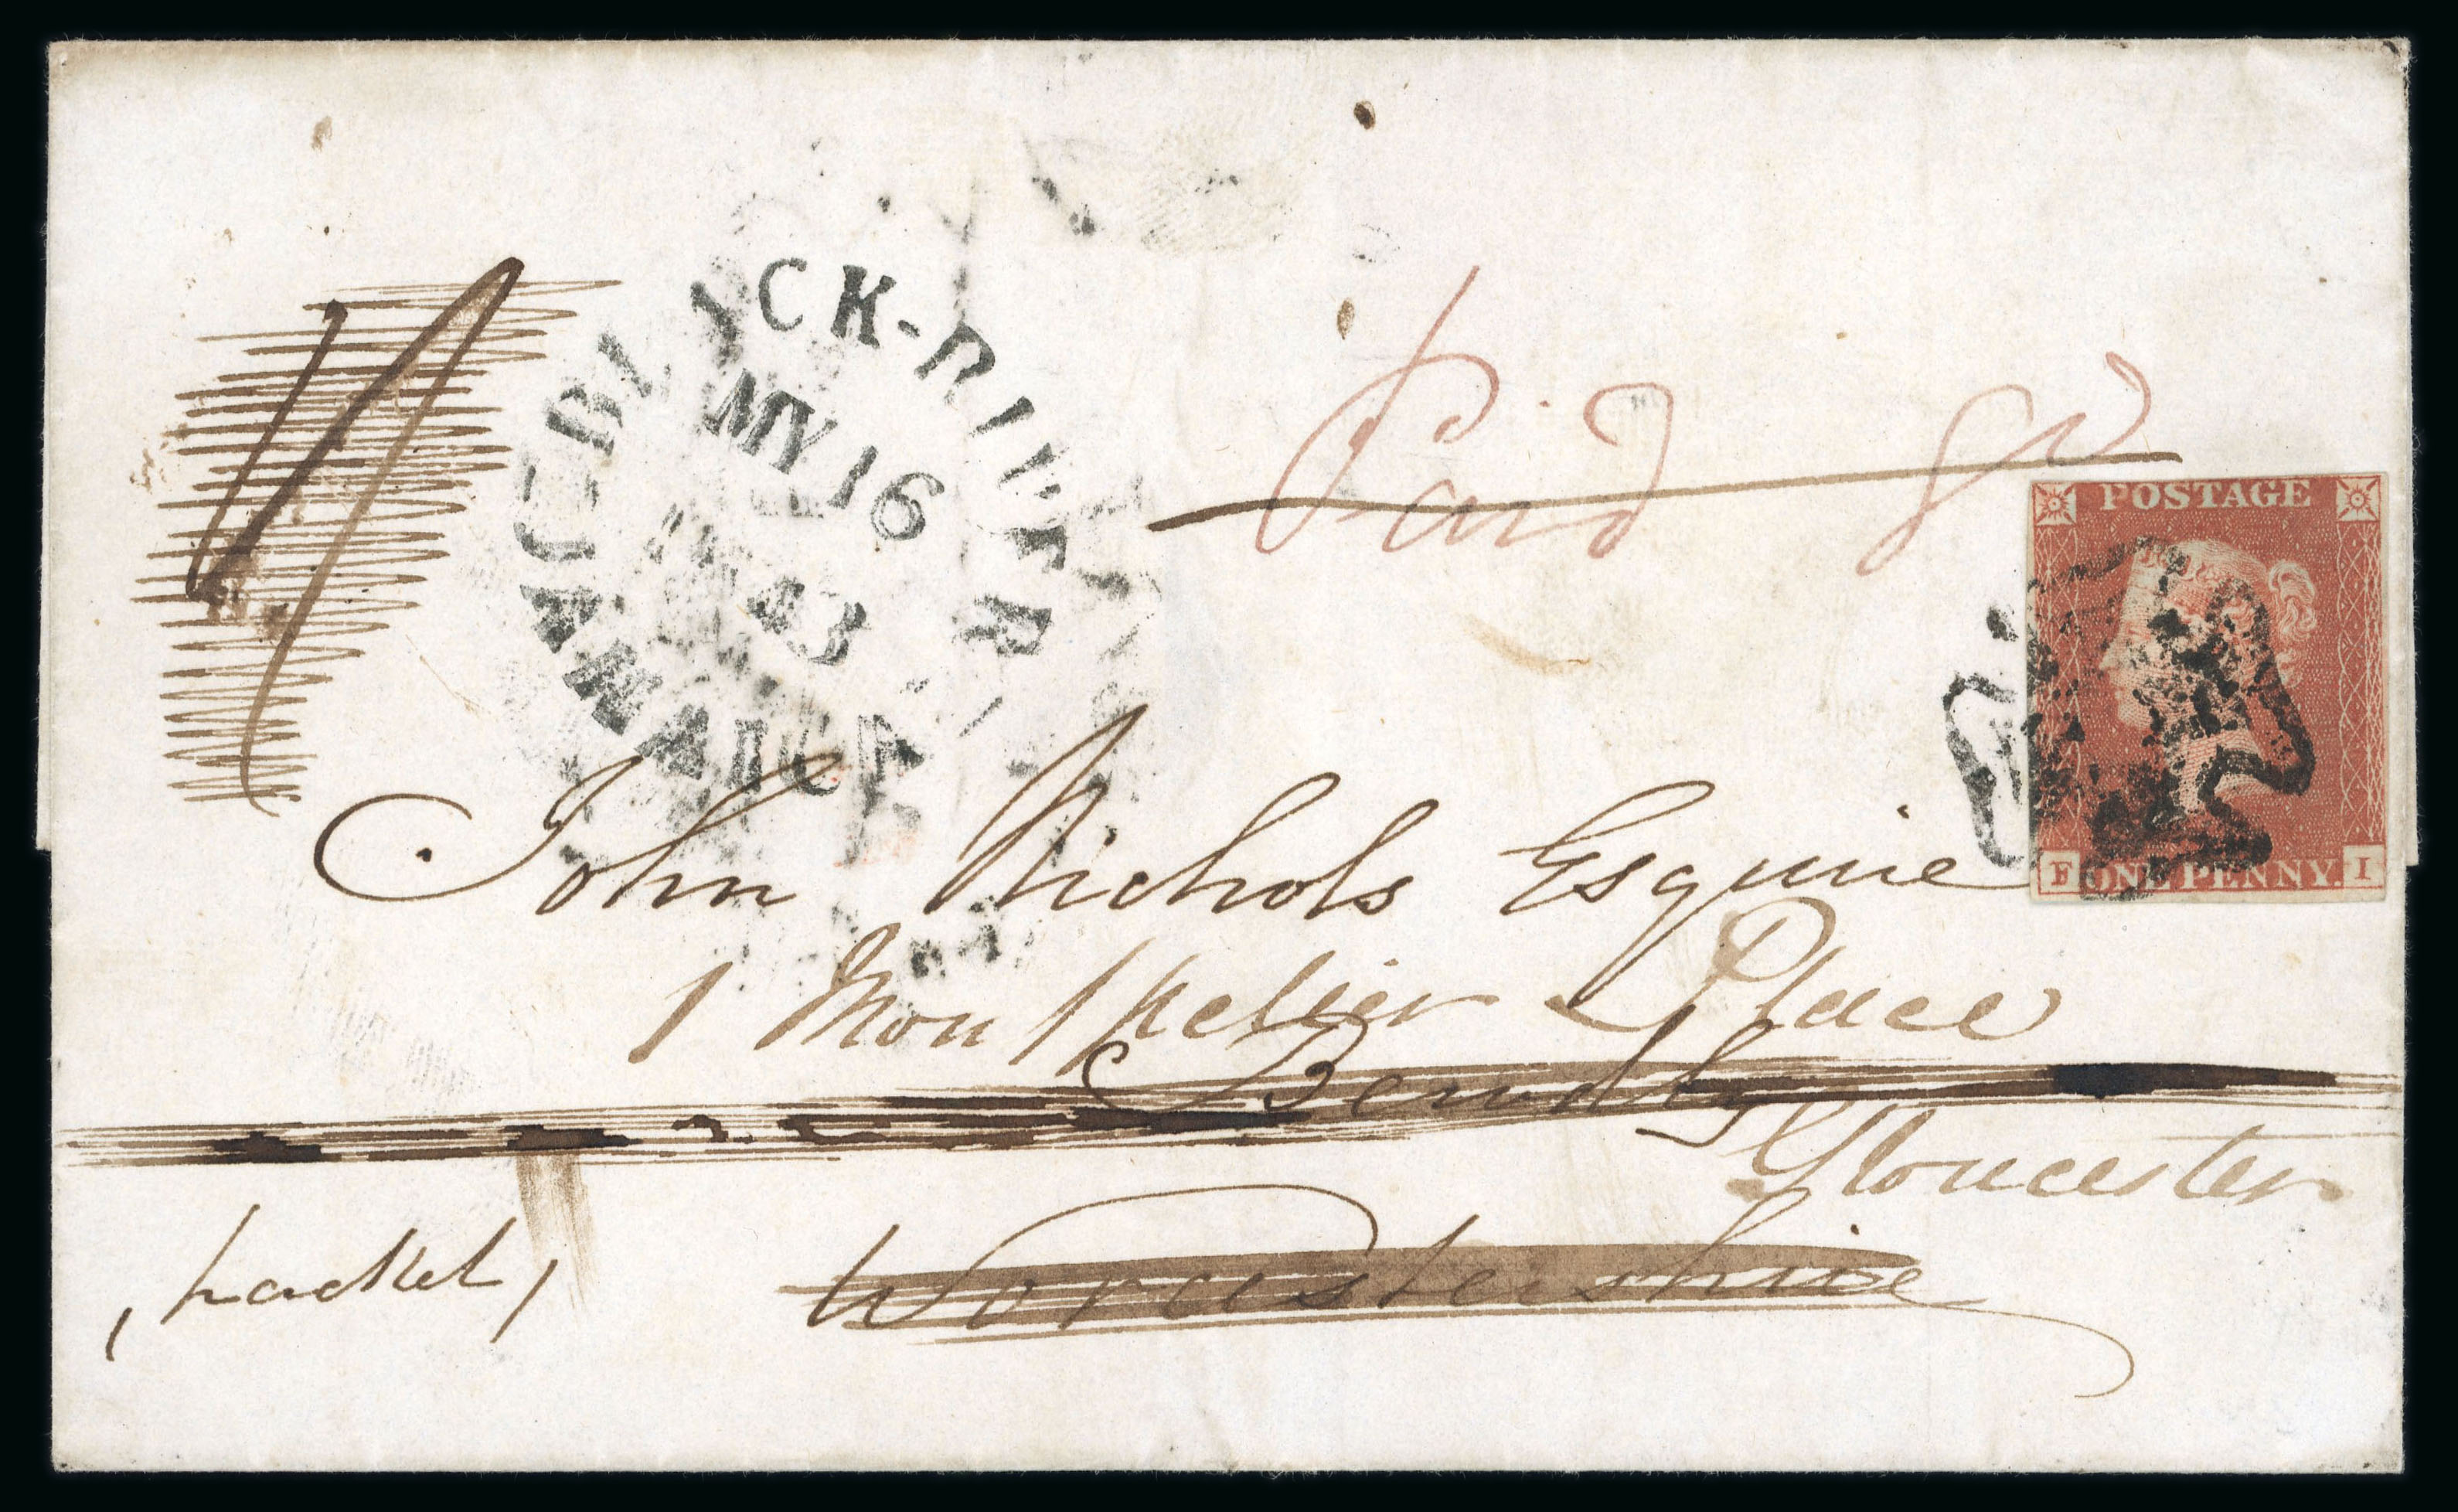 BLACK-RIVER
MY 16
43
JAMAICA
Paid
POSTAGE
F ONE PENNY. I
John Nichols Esquire
1 Montpelier Place
Bewdly
Gloucester
packet,
Worcestershire